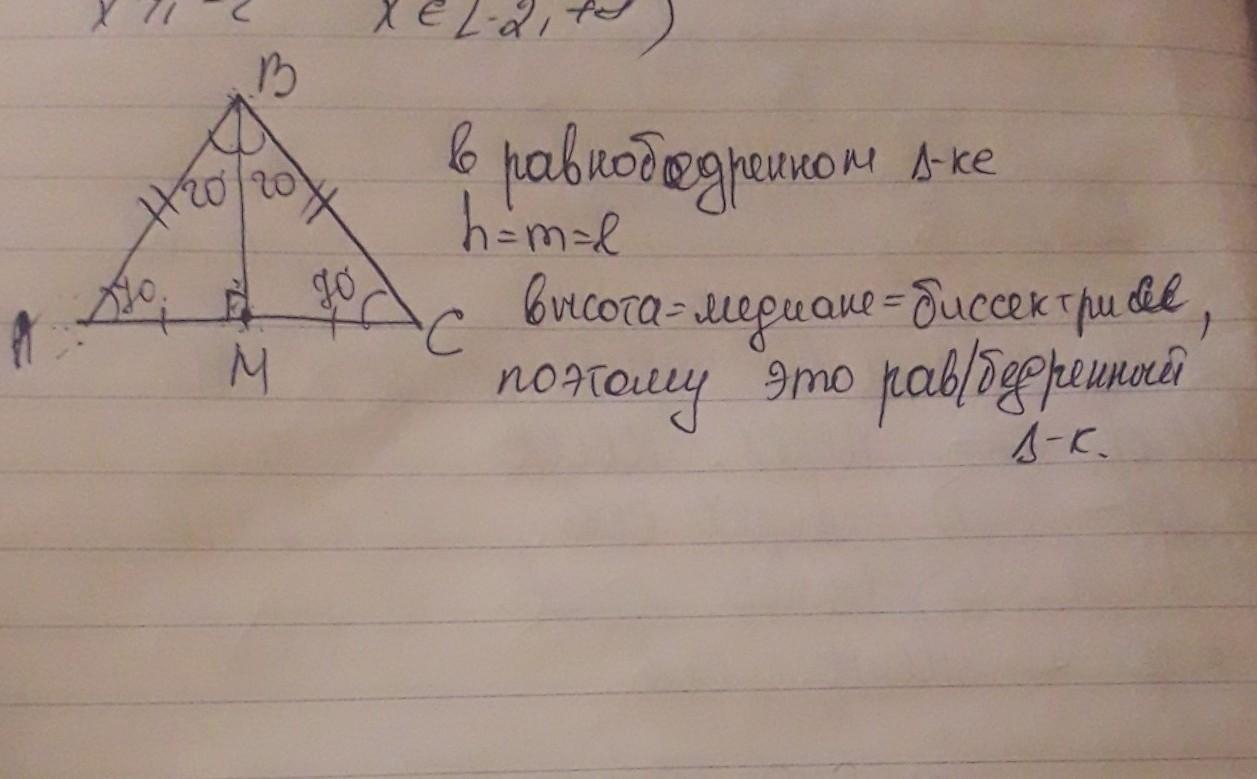 x ∈ [-2, +∞)
B
20° 20°
70° 70°
A
M
C
в равнобедренном Δ-ке
h=m=l
высота=медиане=биссектрисе,
поэтому это рав/бедренный
Δ-к.